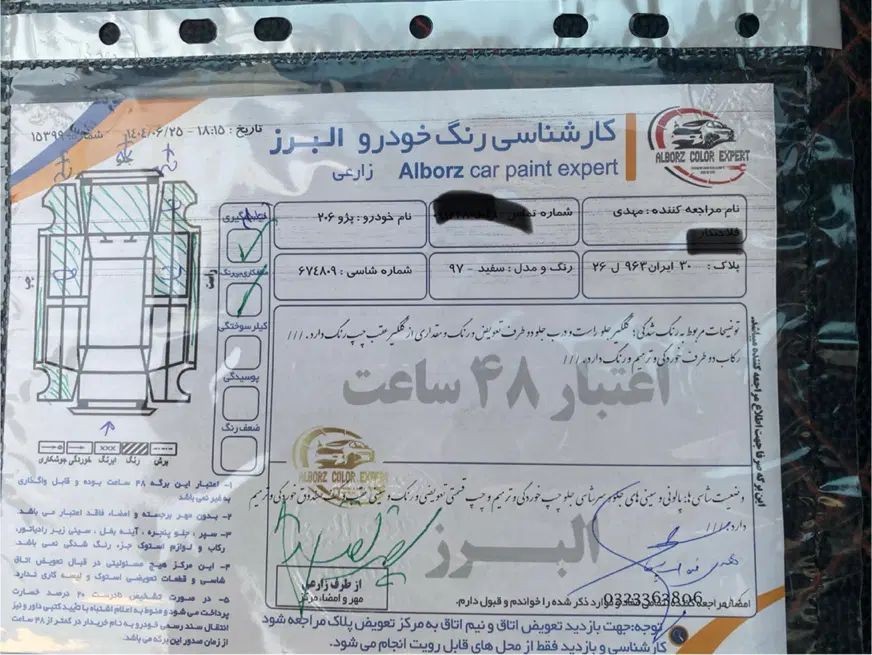 کارشناسی رنگ خودرو البرز
Alborz car paint expert زارعی
ALBORZ COLOR EXPERT
تاریخ : ۱۸:۱۵ - ۱۴۰۴/۰۶/۲۵ شماره: ۱۵۳۹۹
نام مراجعه کننده : مهدی
شماره تماس
نام خودرو : پژو ۲۰۶
پلاک : ۳۰ ایران ۹۶۳ ل ۲۶
رنگ و مدل : سفید - ۹۷
شماره شاسی : ۶۷۴۸۰۹
راست
چپ
کیلر سوختگی
پوسیدگی
ضعف رنگ
برش رنگ لیرنگ خوردگی جوشکاری
توضیحات مربوط به رنگ شدگی: گلگیر جلو راست و درب جلو دو طرف تعویض و رنگ و مقداری از گلگیر عقب چپ رنگ دارد. ///
رکاب دو طرف خوردگی و ترمیم و رنگ دارد. ///
اعتبار ۴۸ ساعت
این برگه صرفا جهت اطلاع مراجعه کننده میباشد
ALBORZ COLOR EXPERT
وضعیت شاسی ها: پالونی و سینی های جلو سر شاسی جلو چپ خوردگی و ترمیم و چپ قسمتی تعویض و رنگ و سینی عقب و کف صندوق خوردگی و ترمیم
دارد. ///
البرز
۱- اعتبار این برگه ۴۸ ساعت بوده و قابل واگذاری
به غیر نمی باشد
۲- بدون مهر برجسته و امضاء فاقد اعتبار می باشد.
۳- سپر ، جلو پنجره ، آینه بغل ، سینی زیر رادیاتور،
رکاب و لوازم استوک جزء رنگ شدگی نمی باشد.
۴- این مرکز هیچ مسئولیتی در قبال تعویض اتاق
شاسی و قطعات تعویضی استوک و لیسه کاری ندارد.
۵- در صورت تشخیص نادرست ۲۰ درصد خسارت
پرداخت می‌شود و منوط به اعلام اشتباه با تأیید کتبی داور و نیز
انتقال سند رسمی خودرو به نام خریدار در کمتر از ۴۸ ساعت
از زمان صدور این برگه می باشد.
از طرف زارعی
مهر و امضاء مرکز
0323363806
امضاء مراجعه کننده موارد ذکر شده را خواندم و قبول دارم.
توجه: جهت بازدید تعویض اتاق و نیم اتاق به مرکز تعویض پلاک مراجعه شود
کارشناسی و بازدید فقط از محل های قابل رویت انجام می شود.